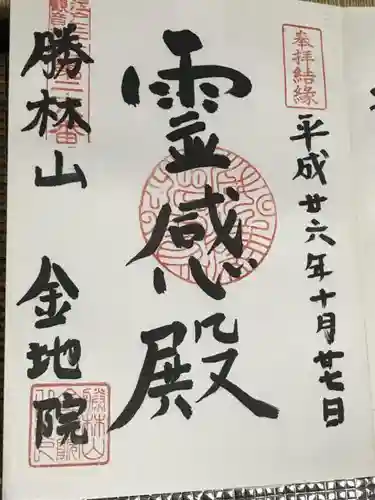 奉拝結縁
平成廿六年十月廿七日
霊感殿
勝林山
金地院